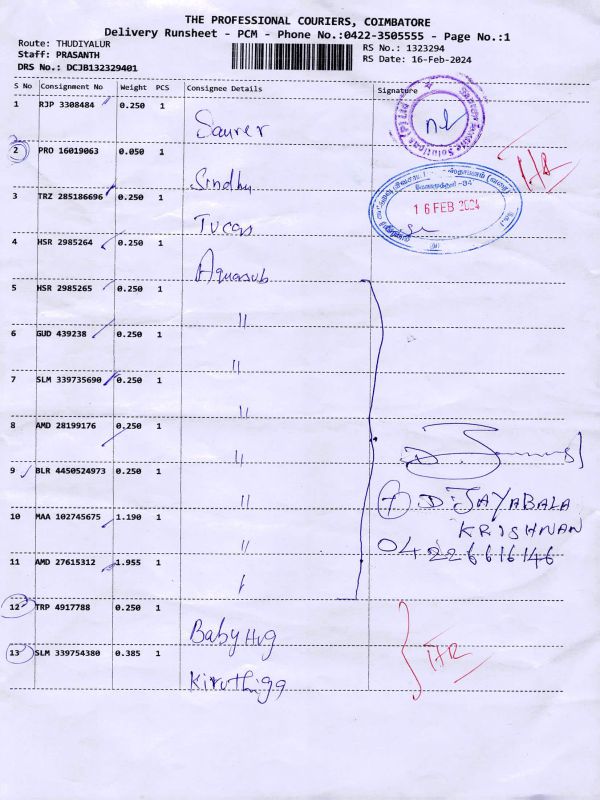 THE PROFESSIONAL COURIERS, COIMBATORE
Delivery Runsheet - PCM - Phone No.:0422-3505555 - Page No.:1
Route: THUDIYALUR
Staff: PRASANTH
DRS No.: DCJB132329401
RS No.: 1323294
RS Date: 16-Feb-2024
S No Consignment No Weight PCS Consignee Details Signature
1 RJP 3308484 0.250 1 Saurer
2 PRO 16019063 0.050 1 Sindhu
3 TRZ 285186696 0.250 1 Tucas
4 HSR 2985264 0.250 1 Aquasub
5 HSR 2985265 0.250 1 "
6 GUD 439238 0.250 1 "
7 SLM 339735690 0.250 1 "
8 AMD 28199176 0.250 1 "
9 BLR 4450524973 0.250 1 "
10 MAA 102745675 1.190 1 "
11 AMD 27615312 1.955 1
12 TRP 4917788 0.250 1 Baby Hug
13 SLM 339754380 0.385 1 Kiruthiga
16 FEB 2024
D. JAYABALA
KRISHNAN
0422 6616146